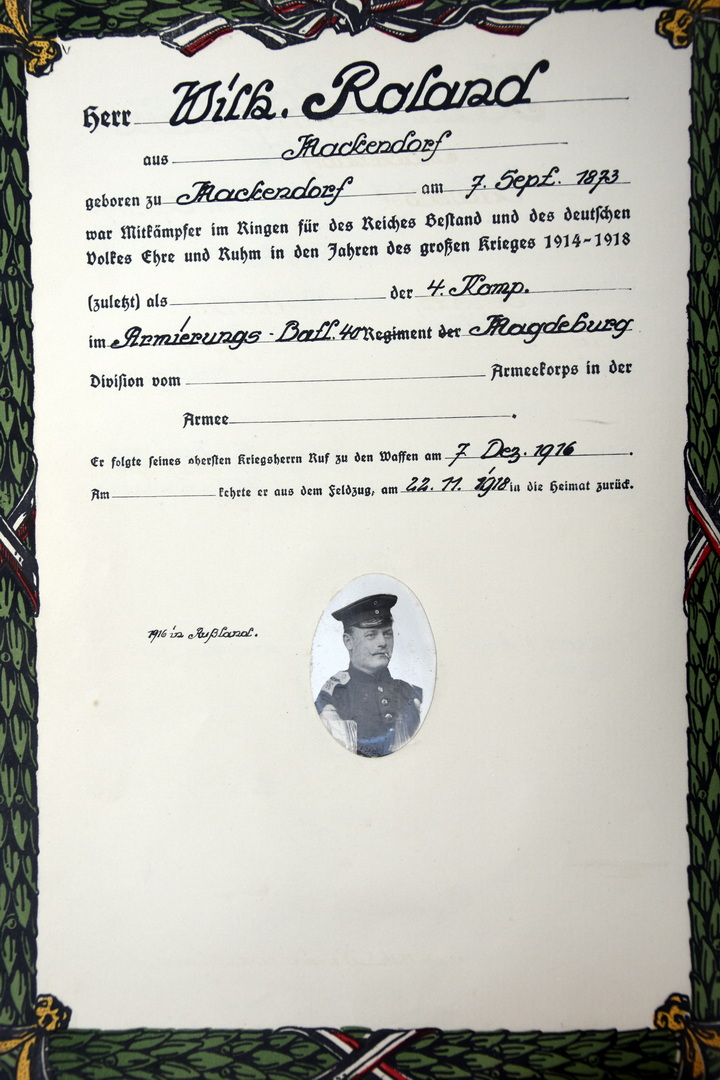 Herr Wilh. Roland
aus Mackendorf
geboren zu Mackendorf am 7. Sept. 1873
war Mitkämpfer im Ringen für des Reiches Bestand und des deutschen
Volkes Ehre und Ruhm in den Jahren des großen Krieges 1914-1918
(zuletzt) als der 4. Komp.
im Armierungs-Batl. 40 Regiment der Magdeburg
Division vom Armeekorps in der
Armee .
Er folgte seines obersten Kriegsherrn Ruf zu den Waffen am 7. Dez. 1916 .
Am kehrte er aus dem Feldzug, am 22. 11. 1918 in die Heimat zurück.
1916 in Rußland.